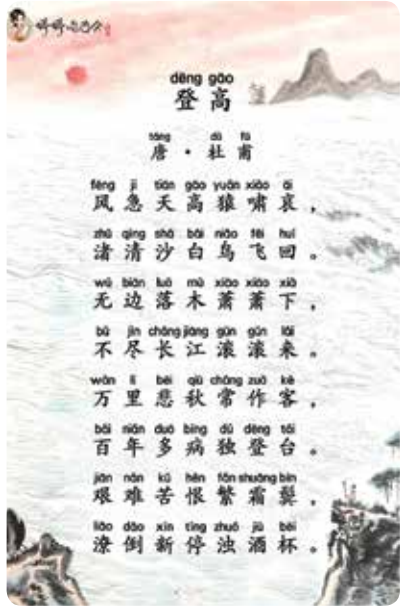 dēng gāo
登 高
táng dù fǔ
唐 · 杜 甫
fēng jí tiān gāo yuán xiào āi
风 急 天 高 猿 啸 哀 ，
zhǔ qīng shā bái niǎo fēi huí
渚 清 沙 白 鸟 飞 回 。
wú biān luò mù xiāo xiāo xià
无 边 落 木 萧 萧 下 ，
bù jìn cháng jiāng gǔn gǔn lái
不 尽 长 江 滚 滚 来 。
wàn lǐ bēi qiū cháng zuò kè
万 里 悲 秋 常 作 客 ，
bǎi nián duō bìng dú dēng tái
百 年 多 病 独 登 台 。
jiān nán kǔ hèn fán shuāng bìn
艰 难 苦 恨 繁 霜 鬓 ，
liáo dǎo xīn tíng zhuó jiǔ bēi
潦 倒 新 停 浊 酒 杯 。